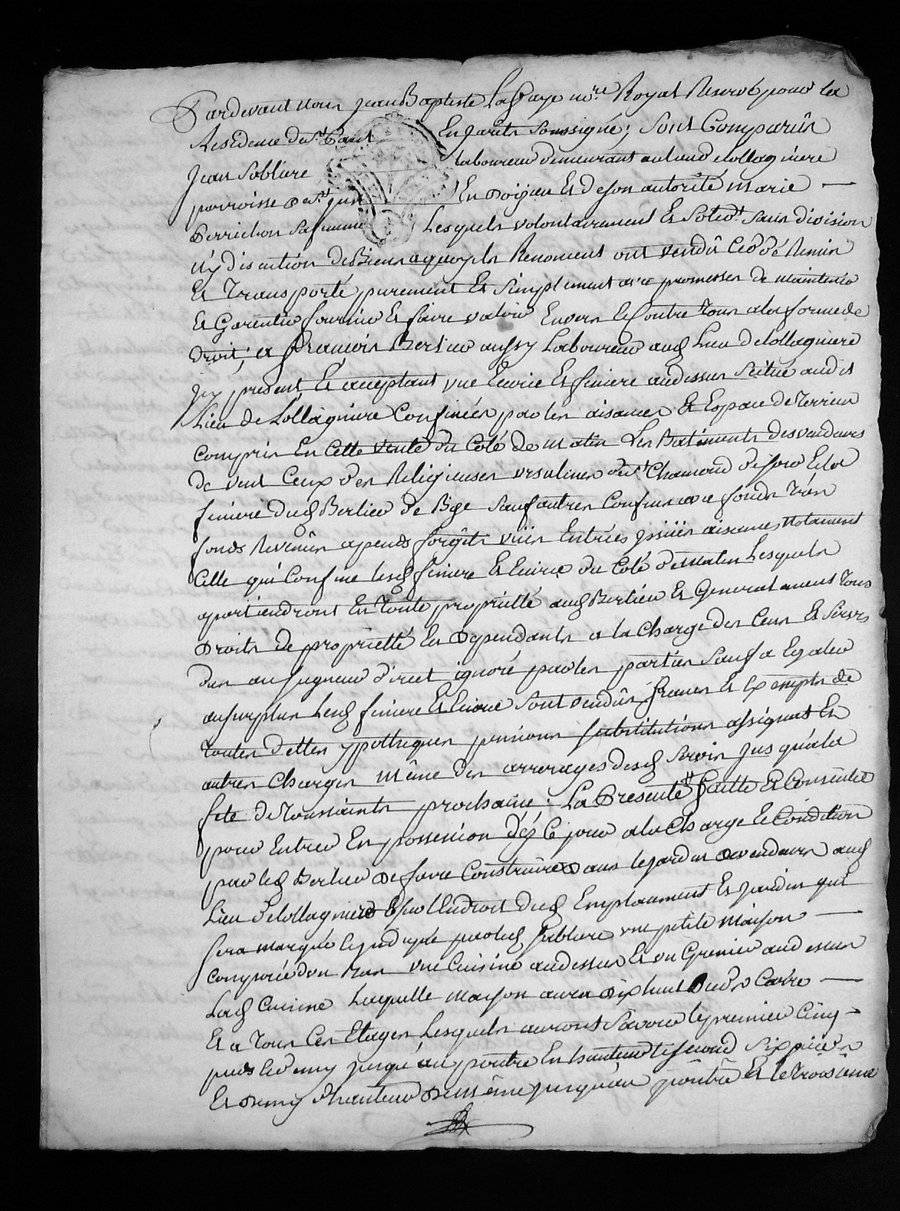 Pardevant nous Jean Baptiste Lafaye nre Royal Reservé pour la
Residence de st Paul En Jarêts Soussigné, Sont Comparûs
Jean Sobliere laboureur demeurant au lieu de lollagniere
parroisse de st Jean En doizieu Et de son autorité marie —
Perrichon sa femme Lesquels volontairement Et Solidt. Sans division
n'y discution de Biens a quoy ils Renoncent ont vendû Cedé Remis
Et Transporté purement Et Simplement avec promesses de maintenir
Et Garentir fournir Et faire valoir Envers Et Contre Tous a la forme de
droit, a francois Berlier aussy Laboureur aud Lieu de lollagniere
Icy present Et acceptant une Ecurie Et finiere au dessus Scitué audit
Lieu de Lollagniere Confinées par les aisances Et Espace de Terrein
Compris En Cette vente du Coté de matin Les Batiments des vendeurs
de vent Ceux des Religieuses ursulines de st Chamond de soir Et la
finiere dud Berlier de Bize Sauf autres Confins avec fonds Trés
fonds Revenûs apends forjets vües Entrées issües aisances Notament
Celle qui Confine lesd finiere Et Ecurie du Coté de matin Lesquels
apartiendront En Toute proprieté aud Berlier Et Generalement Tous
Droits de proprieté En dependants a la Charge des Cens Et Servis
dus au seigneur direct ignoré par les parties Sauf a Egaler
au surplus Lesd finiere Et Ecurie Sont vendûs francs Et Exempts de
Toutes dettes ypotheques pensions Substitutions assignats Et
autres Charges même des arrerages desd Servis Jusqu'a la
fete de Toussaints prochaine; La Presente vte faitte Et Consentie
pour Entrer En possession dez Ce jour a la Charge Et Condition
par led Berlier de faire Construire dans le jardin des vendeurs aud
Lieu de lollagniere Et sur l'Endroit dud Emplacement Et jardin qui
Sera marqué Et indiqué par led Sobliere une petite maison —
Composée d'un Bas une Cuisine au dessus Et un Grenier au dessus
Lad Cuisine Laquelle maison aura dix huit pieds Carré —
Et a Tous Ces Etages Lesquels auront Savoir le premier Cinq
pieds Et demy jusqu'au poutre En hauteur le second Six pieds
Et demy d'hauteur de même jusqu'au poutre Et le troisieme